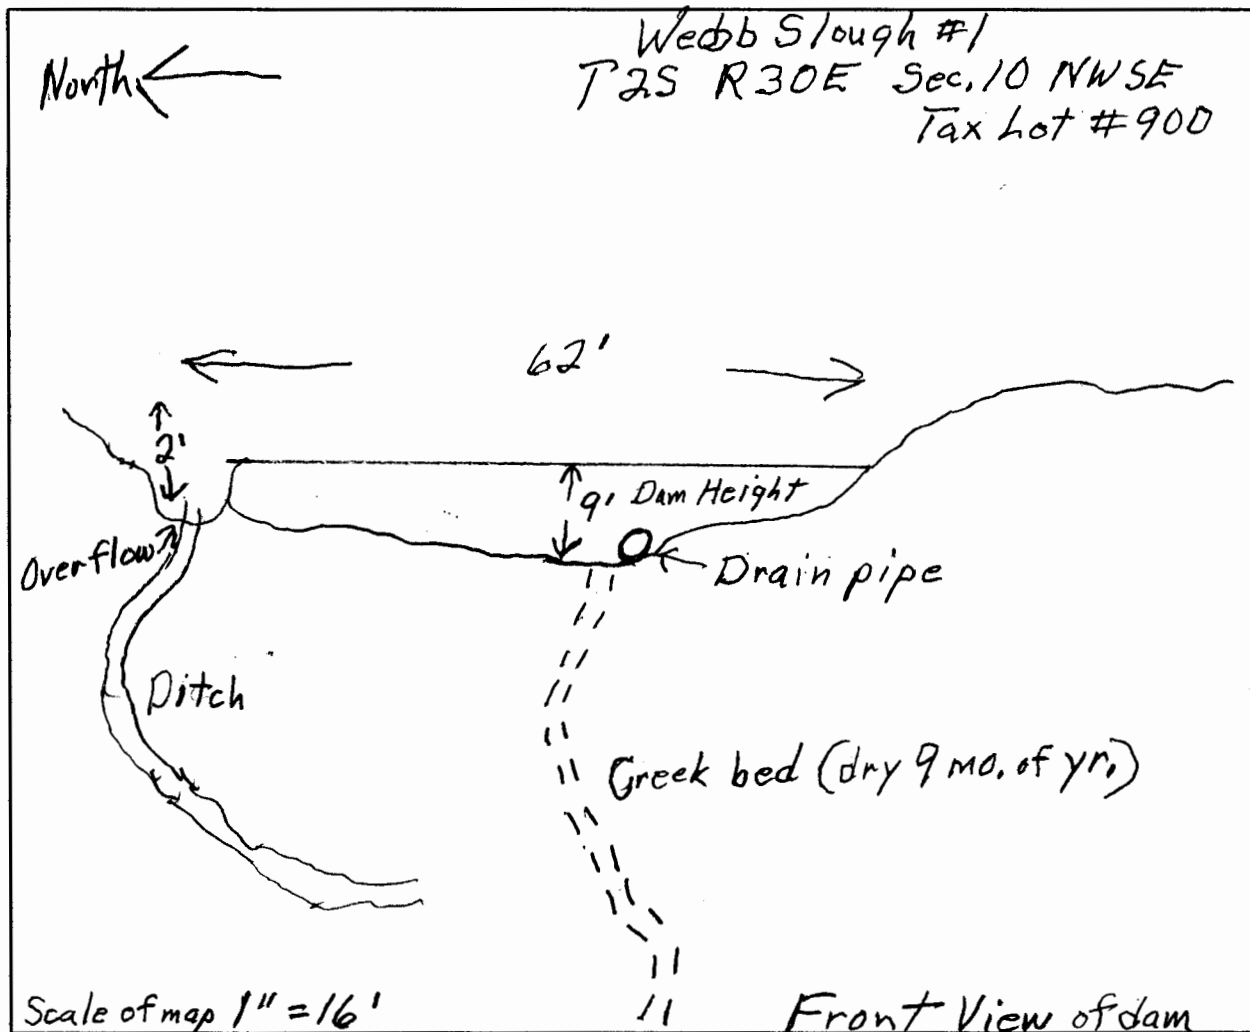 Webb Slough #1
North
T2S R30E Sec. 10 NWSE
Tax Lot #900
62'
2'
9' Dam Height
Overflow
Drain pipe
Ditch
Creek bed (dry 9 mo. of yr.)
Scale of map 1" = 16'
Front View of dam